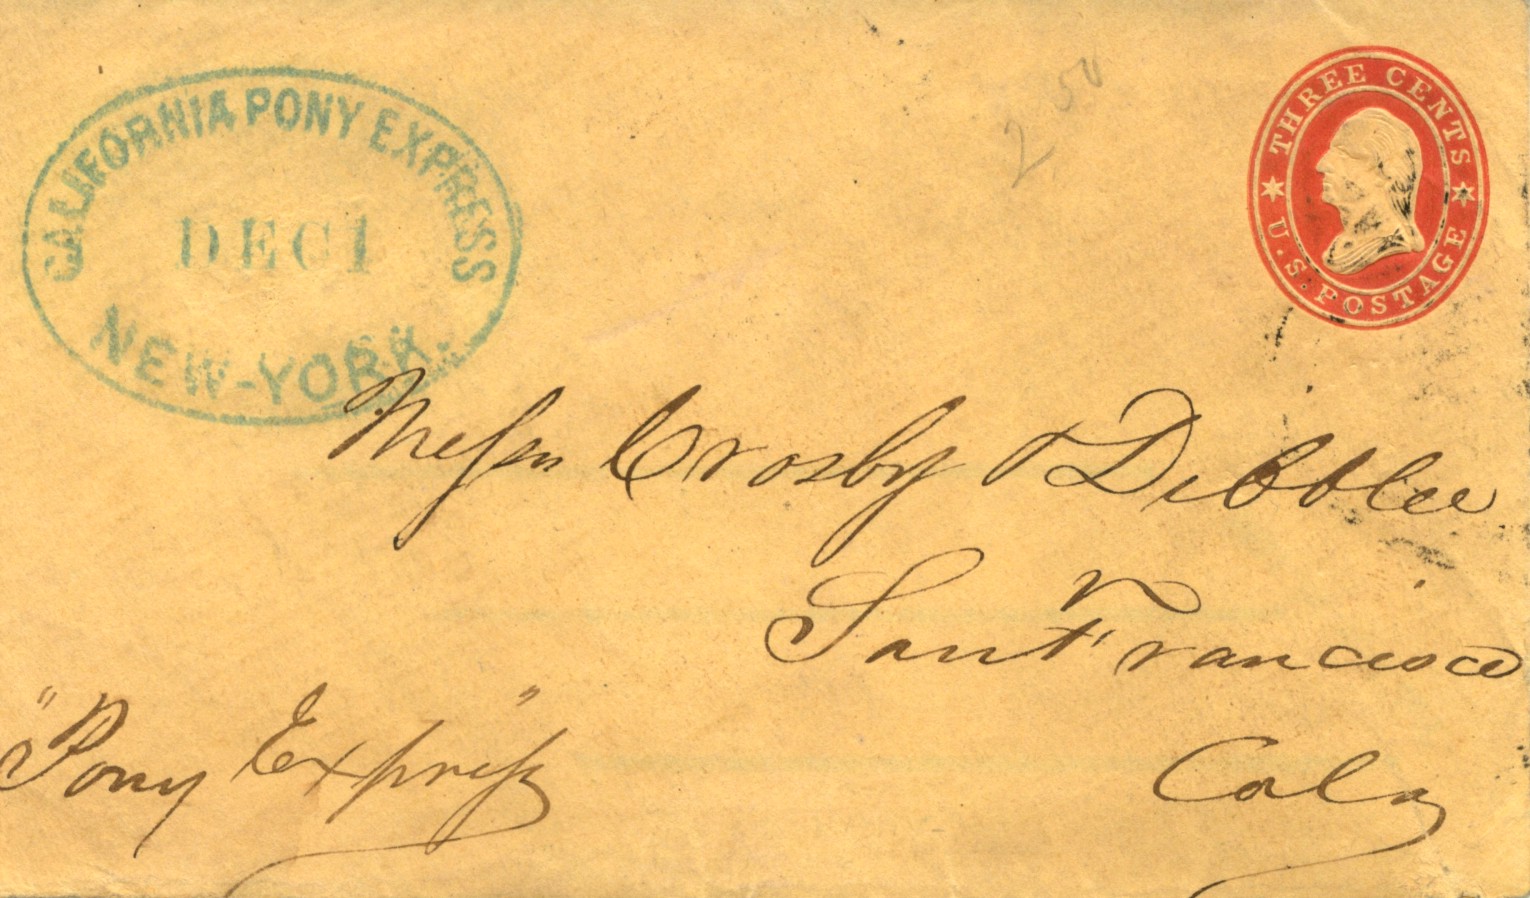 CALIFORNIA PONY EXPRESS
DEC 1
NEW-YORK.
2 50
THREE CENTS
U.S. POSTAGE
Messrs Crosby & Dibblee
San Francisco
Cala
"Pony Express"